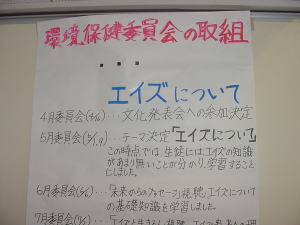 環境保健委員会の取組
・・・
エイズについて
4月委員会(4/6)…文化発表会への参加決定
5月委員会(5/1,9)…テーマ決定「エイズについて」
この時点では、生徒にはエイズの知識
があまり無いことが分かり、学習すること
にしました。
6月委員会(5/6)…「未来からのメッセージ」視聴。エイズについて
の基礎知識を学習しました。
7月委員会